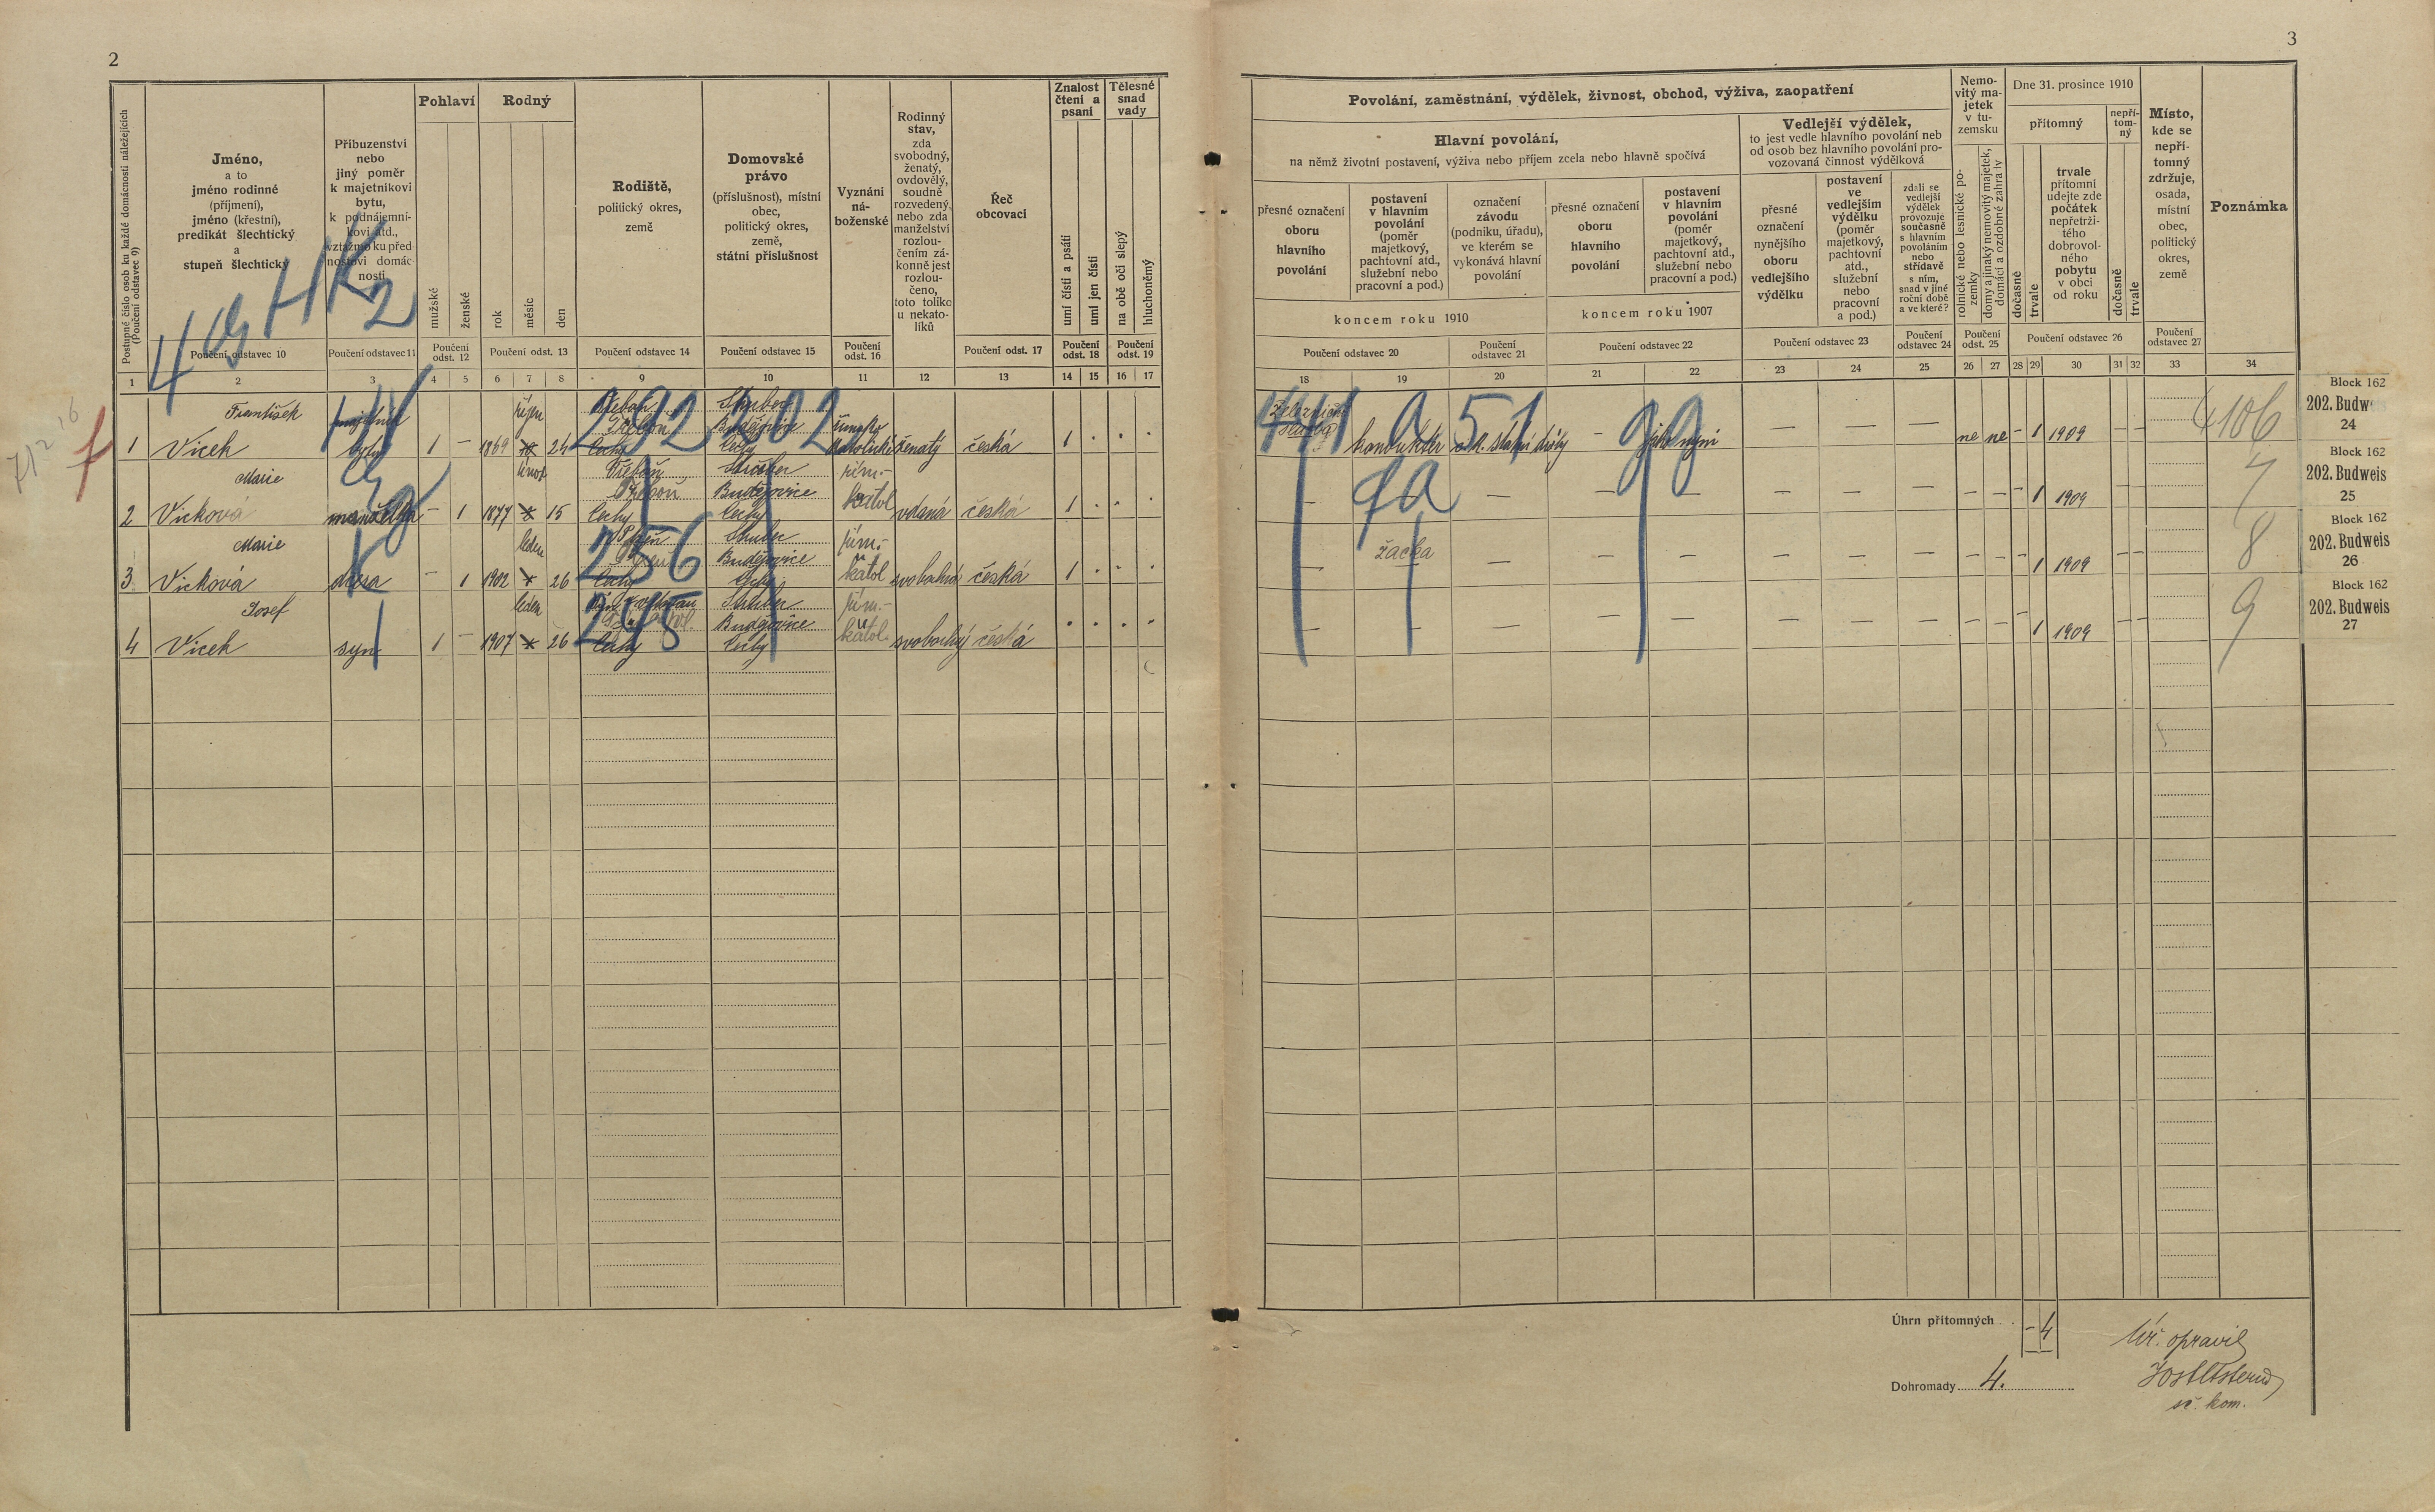 2
Postupné číslo osob ku každé domácnosti náležejících
(Poučení odstavec 9)
Jméno,
a to
jméno rodinné
(příjmení),
jméno (křestní),
predikát šlechtický
a
stupeň šlechtický
Poučení odstavec 10
Příbuzenství
nebo
jiný poměr
k majetníkovi
bytu,
k podnájemní-
kovi atd.,
vztažmo ku před-
nostovi domác-
nosti
Poučení odstavec 11
Pohlaví
mužské
ženské
Poučení
odst. 12
Rodný
rok
měsíc
den
Poučení odst. 13
Rodiště,
politický okres,
země
Poučení odstavec 14
Domovské
právo
(příslušnost), místní
obec,
politický okres,
země,
státní příslušnost
Poučení odstavec 15
Vyznání
ná-
boženské
Poučení
odst. 16
Rodinný
stav,
zda
svobodný,
ženatý,
ovdovělý,
soudně
rozvedený,
nebo zda
manželství
rozlou-
čením zá-
konně jest
rozlou-
čeno,
toto toliko
u nekato-
líků
Řeč
obcovací
Poučení odst. 17
Znalost
čtení a
psaní
umí čísti a psáti
umí jen čísti
Poučení
odst. 18
Tělesné
snad
vady
na obě oči slepý
hluchoněmý
Poučení
odst. 19
1 2 3 4 5 6 7 8 9 10 11 12 13 14 15 16 17
4 HK
2
František říjen Třeboň
Třeboň Budějovice římsko
1 Vicek bytu 1 – 1869 24 Čechy Čechy katolické ženatý česká 1
292 202
Marie únor Třeboň řím.-
Třeboň Budějovice
2 Vicková manželka – 1 1877 15 Čechy Čechy katol vdaná česká 1
Marie leden řím.-
Budějovice
3 Vicková dcera – 1 1902 26 Čechy Čechy katol svobodná česká 1
256
Josef leden řím.-
Budějovice
4 Vicek syn 1 – 1907 26 Čechy Čechy katol. svobodný česká
245
3
Povolání, zaměstnání, výdělek, živnost, obchod, výživa, zaopatření
Hlavní povolání,
na němž životní postavení, výživa nebo příjem zcela nebo hlavně spočívá
přesné označení
oboru
hlavního
povolání
postavení
v hlavním
povolání
(poměr
majetkový,
pachtovní atd.,
služební nebo
pracovní a pod.)
označení
závodu
(podniku, úřadu),
ve kterém se
vykonává hlavní
povolání
koncem roku 1910
Poučení odstavec 20
Poučení
odstavec 21
přesné označení
oboru
hlavního
povolání
postavení
v hlavním
povolání
(poměr
majetkový,
pachtovní atd.,
služební nebo
pracovní a pod.)
koncem roku 1907
Poučení odstavec 22
Vedlejší výdělek,
to jest vedle hlavního povolání neb
od osob bez hlavního povolání pro-
vozovaná činnost výdělková
přesné
označení
nynějšího
oboru
vedlejšího
výdělku
postavení
ve
vedlejším
výdělku
(poměr
majetkový,
pachtovní
atd.,
služební
nebo
pracovní
a pod.)
Poučení odstavec 23
zdali se
vedlejší
výdělek
provozuje
současně
s hlavním
povoláním
nebo
střídavě
s ním,
snad v jiné
roční době
a ve které?
Poučení
odstavec 24
Nemo-
vitý ma-
jetek
v tu-
zemsku
rolnické nebo lesnické po-
zemky
domy a jinaký nemovitý majetek,
domácí a ozdobné zahrady
Poučení
odst. 25
Dne 31. prosince 1910
přítomný
dočasně
trvale
trvale
přítomní
udejte zde
počátek
nepřetrži-
tého
dobrovol-
ného
pobytu
v obci
od roku
nepří-
tom-
ný
dočasně
trvale
Poučení odstavec 26
Místo,
kde se
nepří-
tomný
zdržuje,
osada,
místní
obec,
politický
okres,
země
Poučení
odstavec 27
Poznámka
18 19 20 21 22 23 24 25 26 27 28 29 30 31 32 33 34
konduktér c.k. státní dráhy – jako nyní – – – ne ne – 1 1909 – –
441 a 51 4106
– – – – – – – – – 1 1909 – – 7
žačka – – – – – – – – 1 1909 – – 8
– – – – – – – – – – 1 1909 – – 9
Block 162
202. Budw
24
Block 162
202. Budweis
25
Block 162
202. Budweis
26
Block 162
202. Budweis
27
Úhrn přítomných – 4
Dohromady 4.
opravil
sč. kom.